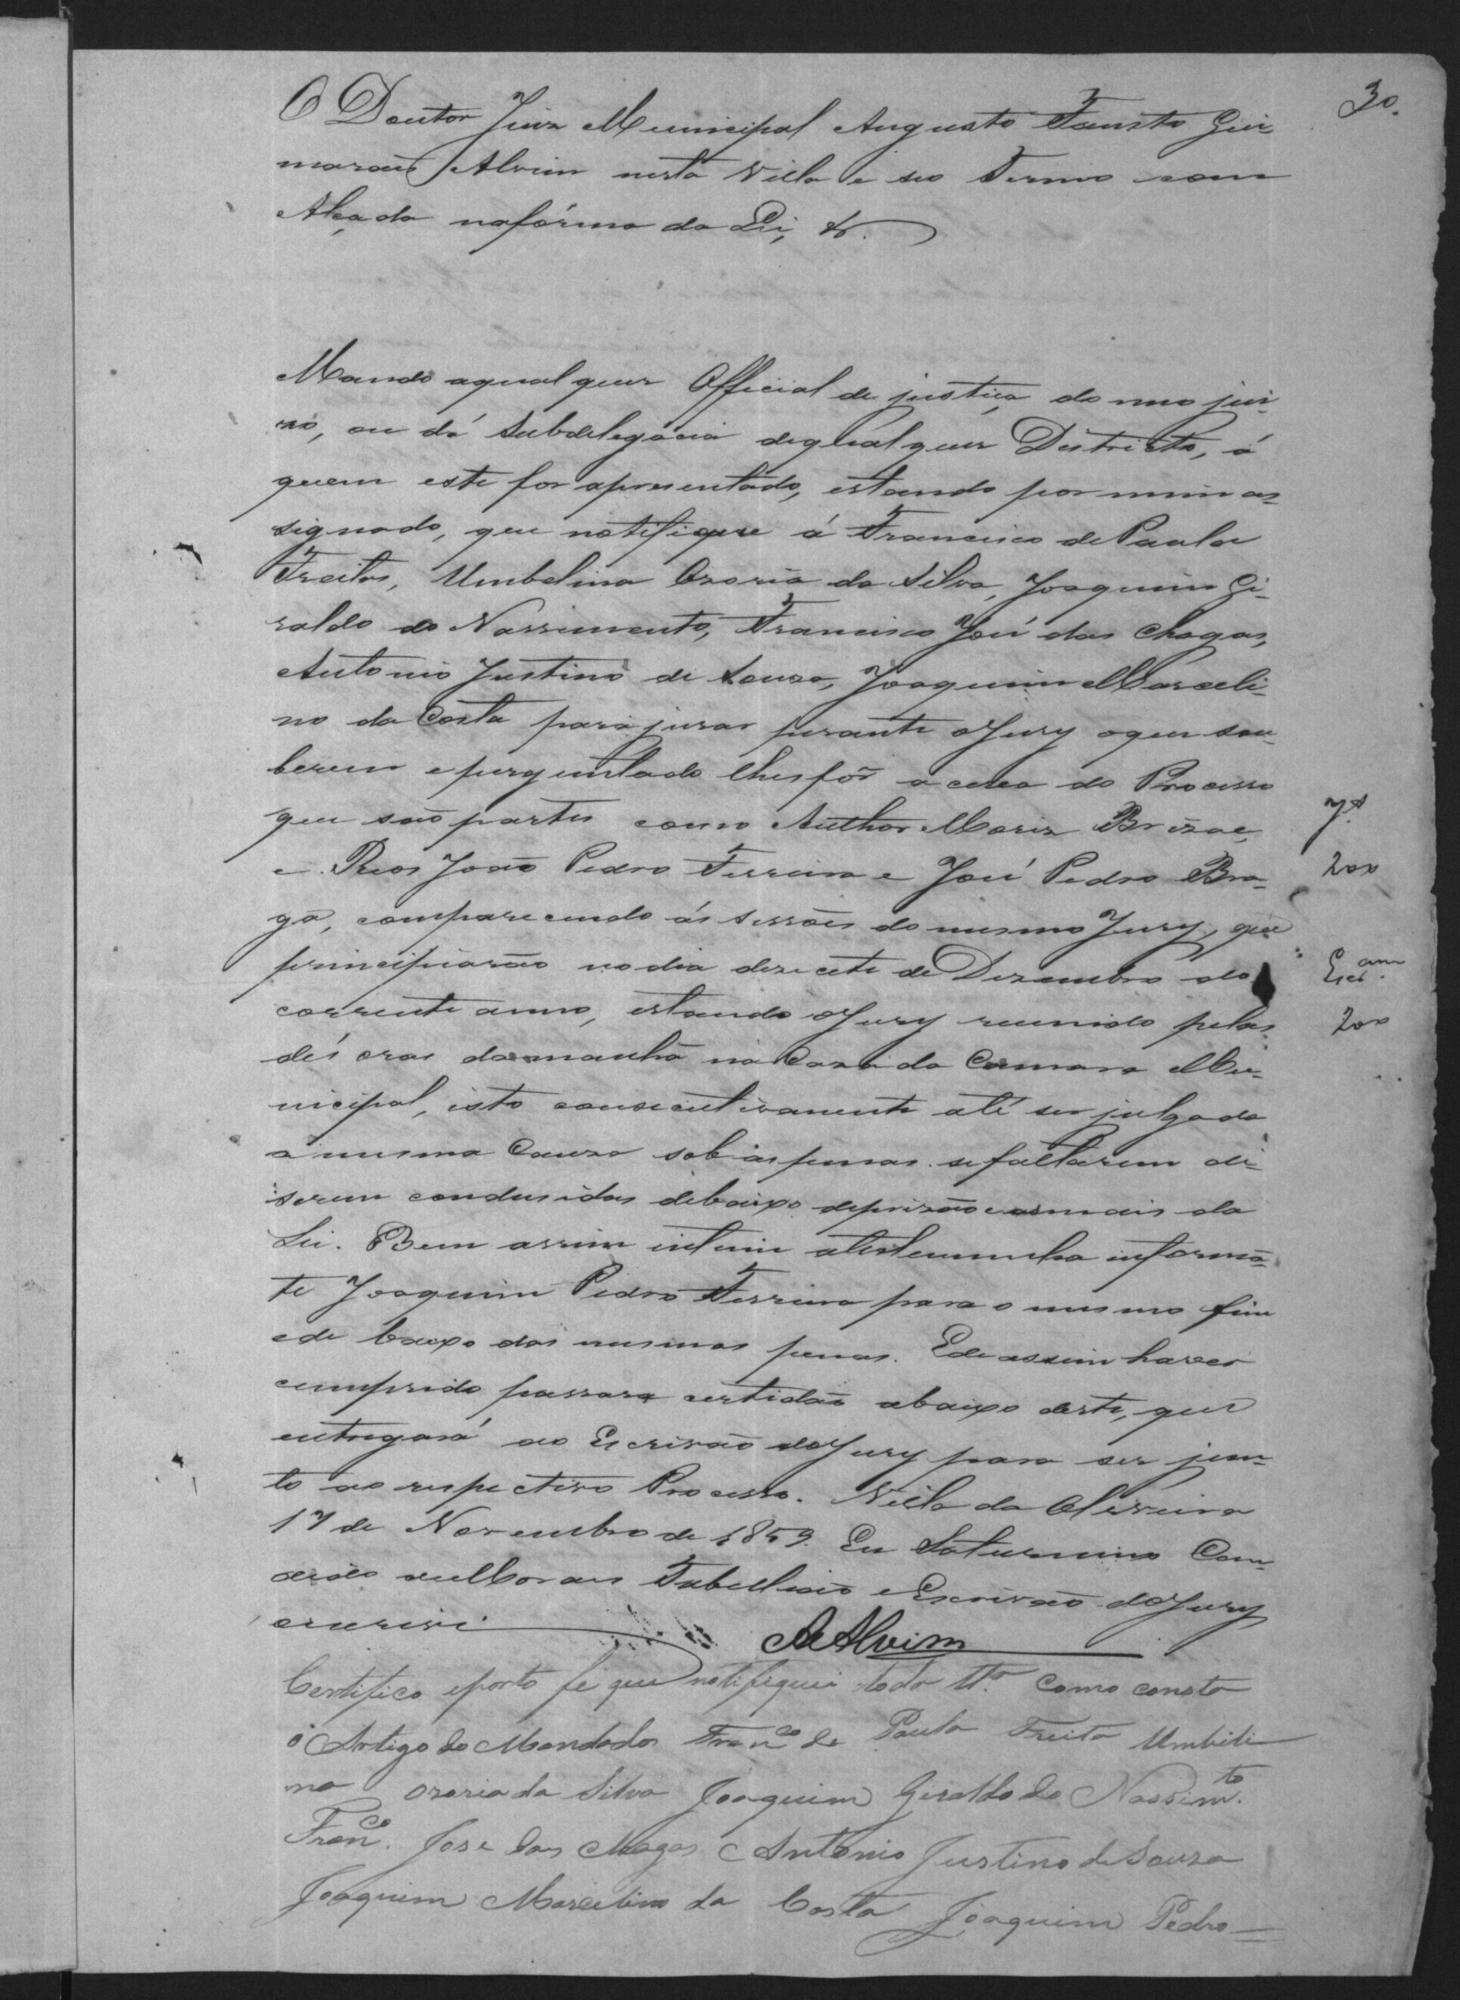 30.
O Doutor Juiz Municipal Augusto Fausto Gui
marães Alvim nesta Villa e seo Termo com
Alçada nafórma da Lei, &.
Mando aqualquer Official de justiça do meo jui-
zo, ou dá Subdelegacia dequalquer Districto, á
quem este for apresentado, estando por mim as-
signado, que notifique á Francisco de Paula
Freitas, Umbelina Ozoria da Silva, Joaquim Gi-
raldo do Nassimento, Francisco José das Chagas,
Antonio Justino de Souza, Joaquim Marceli-
no da Costa para jurar perante o Jury oque sou-
berem eperguntado lhes fôr acerca do Processo
que são partes como Author Maria
e Reos João Pedro Ferreira e José Pedro Bra-
ga, comparecendo ás sessões do mesmo Jury, que
principiarão nodia desecete de Dezembro do
corrente anno, estando oJury reunido pelas
dés oras damanhã na Caza da Camara Mu-
nicipal, isto consecutivamente até ser julgada
a mesma Cauza sob as penas sefaltarem de
serem condusidas debaixo deprizão e asmais da
Lei. Bem assim intime atestemunha informã-
te Joaquim Pedro Ferreira para o mesmo fim
ede baixo das mesmas penas. Ede assim haver
cumprido passara certidão abaixo deste, que
entregará ao Escrivão doJury para ser jun-
to ao respectivo Processo. Villa da Oliveira
17 de Novembro de 1859. Eu Saturnino Can-
dido Tabellião e Escrivão doJury
escrevi.
Alvim
200
200
Certifico eporto fé que notifiquei todo tt.º como consta
o Artigo do Mandado Fran.co de Paula Freita Umbili
na Ozoria da Silva Joaquim Geraldo do Nassim.to
Fran.co Jose das Chagas Antonio Justino de Souza
Joaquim Marcelino da Costa Joaquim Pedro